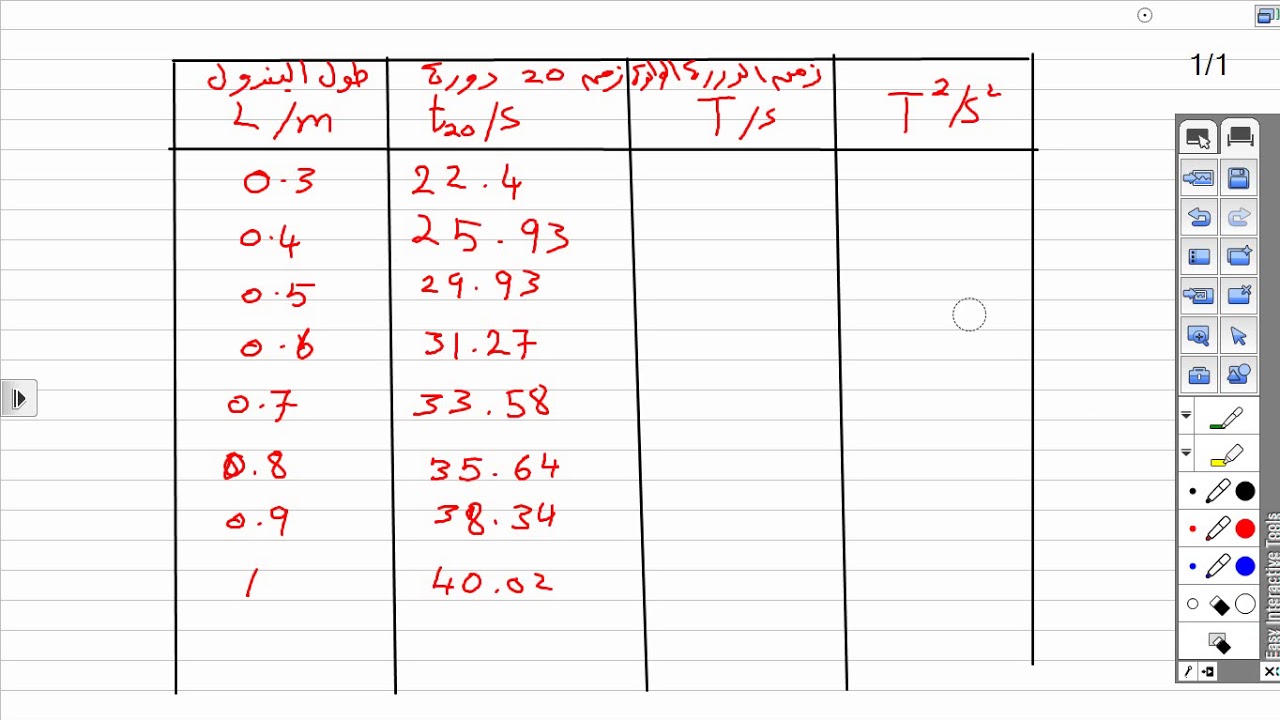 1/1
طول البندول زمن 20 دورة زمن الدورة الواحدة
L/m t20/s T/s T²/s²
0.3 22.4
0.4 25.93
0.5 29.93
0.6 31.27
0.7 33.58
0.8 35.64
0.9 38.34
1 40.02
Easy Interactive Tools